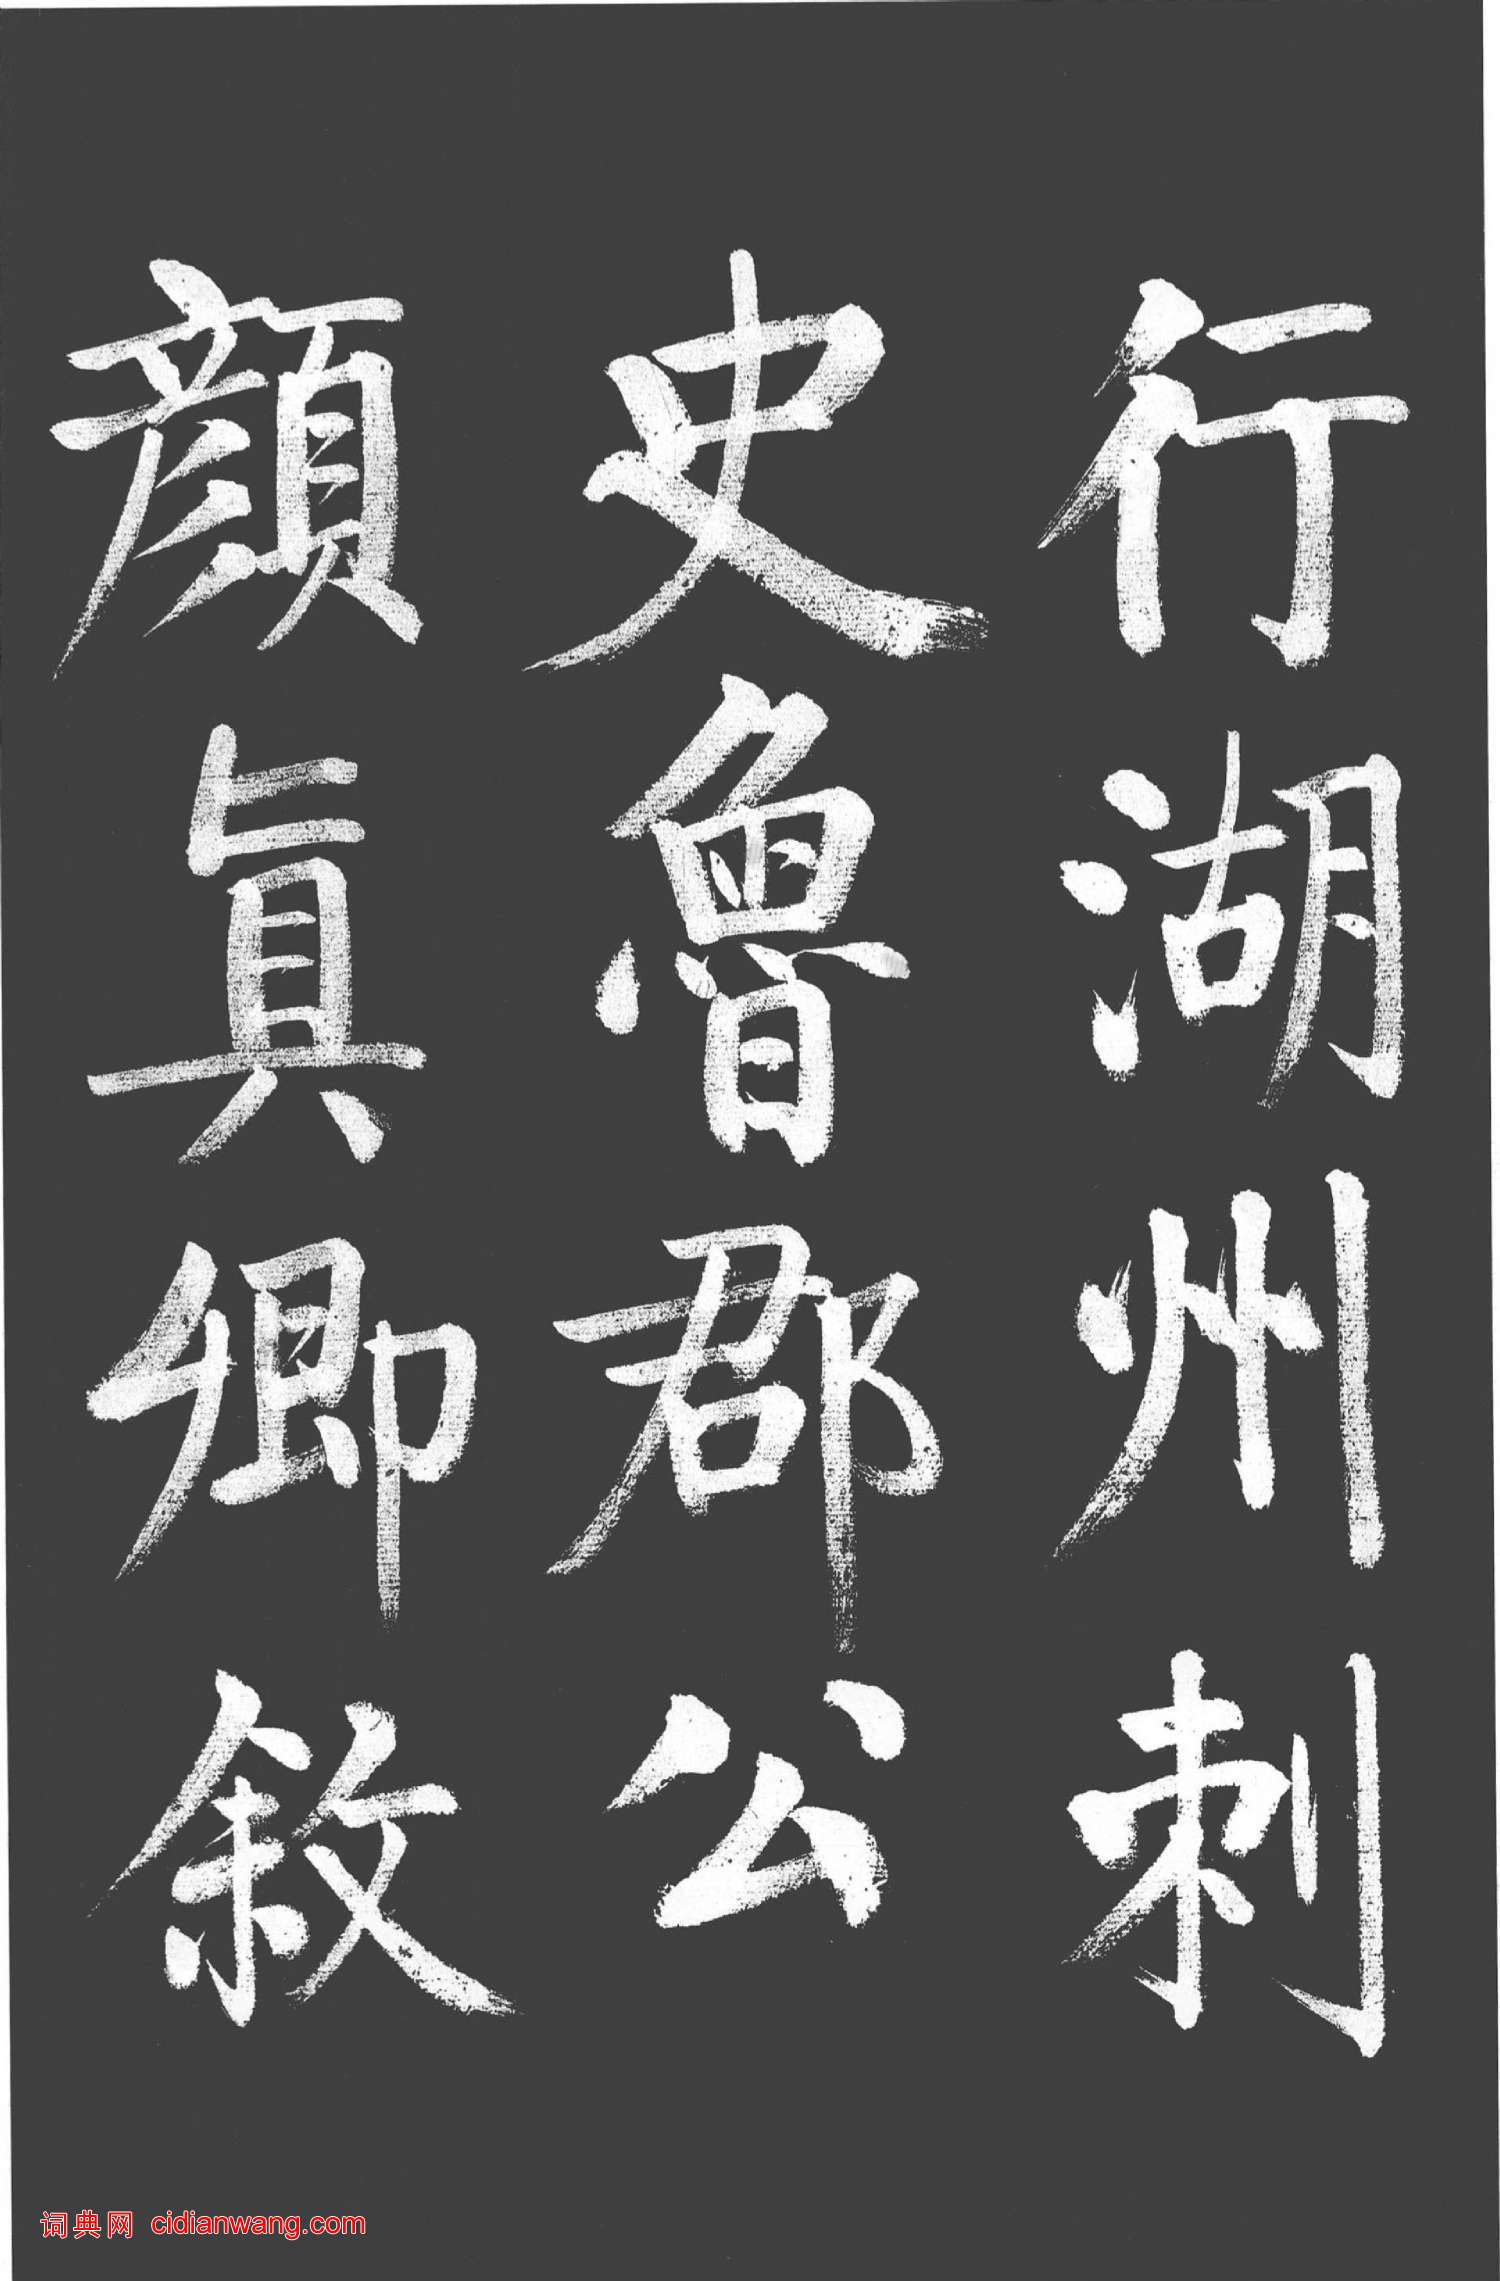 行湖州刺
史魯郡公
顔眞卿敘
词典网 cidianwang.com